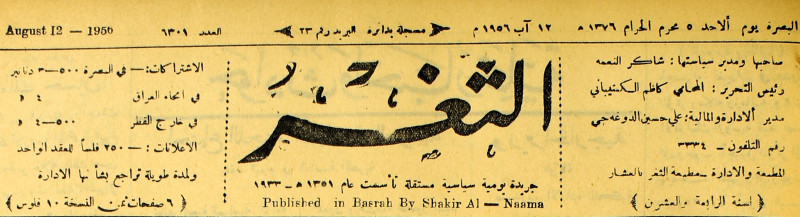 البصرة يوم ألاحد ٥ محرم الحرام ١٣٧٦ ه
١٢ آب ١٩٥٦ م
مسجلة بدائرة البريد رقم ٢٣
العدد ٦٣٠١
August 12 - 1956
صاحبها ومدير سياستها : شاكر النعمه
رئيس التحرير : المحامي كاظم الكشتيباني
مدير ألادارة والمالية : علي حسين الدوغه جي
رقم التلفون - ٣٣٣٤
المطبعة والادارة - مطبعة الثغر بالعشار
( لسنة الرابعة والعشرن )
الثغر
جريدة يومية سياسية مستقلة تأسست عام ١٣٥١ ه - ١٩٣٣
Published in Basrah By Shakir Al - Naama
الاشتراكات : - في البصرة ٥٠٠-٣ دنانير
في انحاء العراق ٤ د
في خارج القطر ٥٠٠-٤ د
الاعلانات : - ٢٥٠ فلساً للعقد الواحد
ولمدة طويلة تراجع بشأنها الادارة
( ٦ صفحات ثمن النسخة ١٠ فلوس )